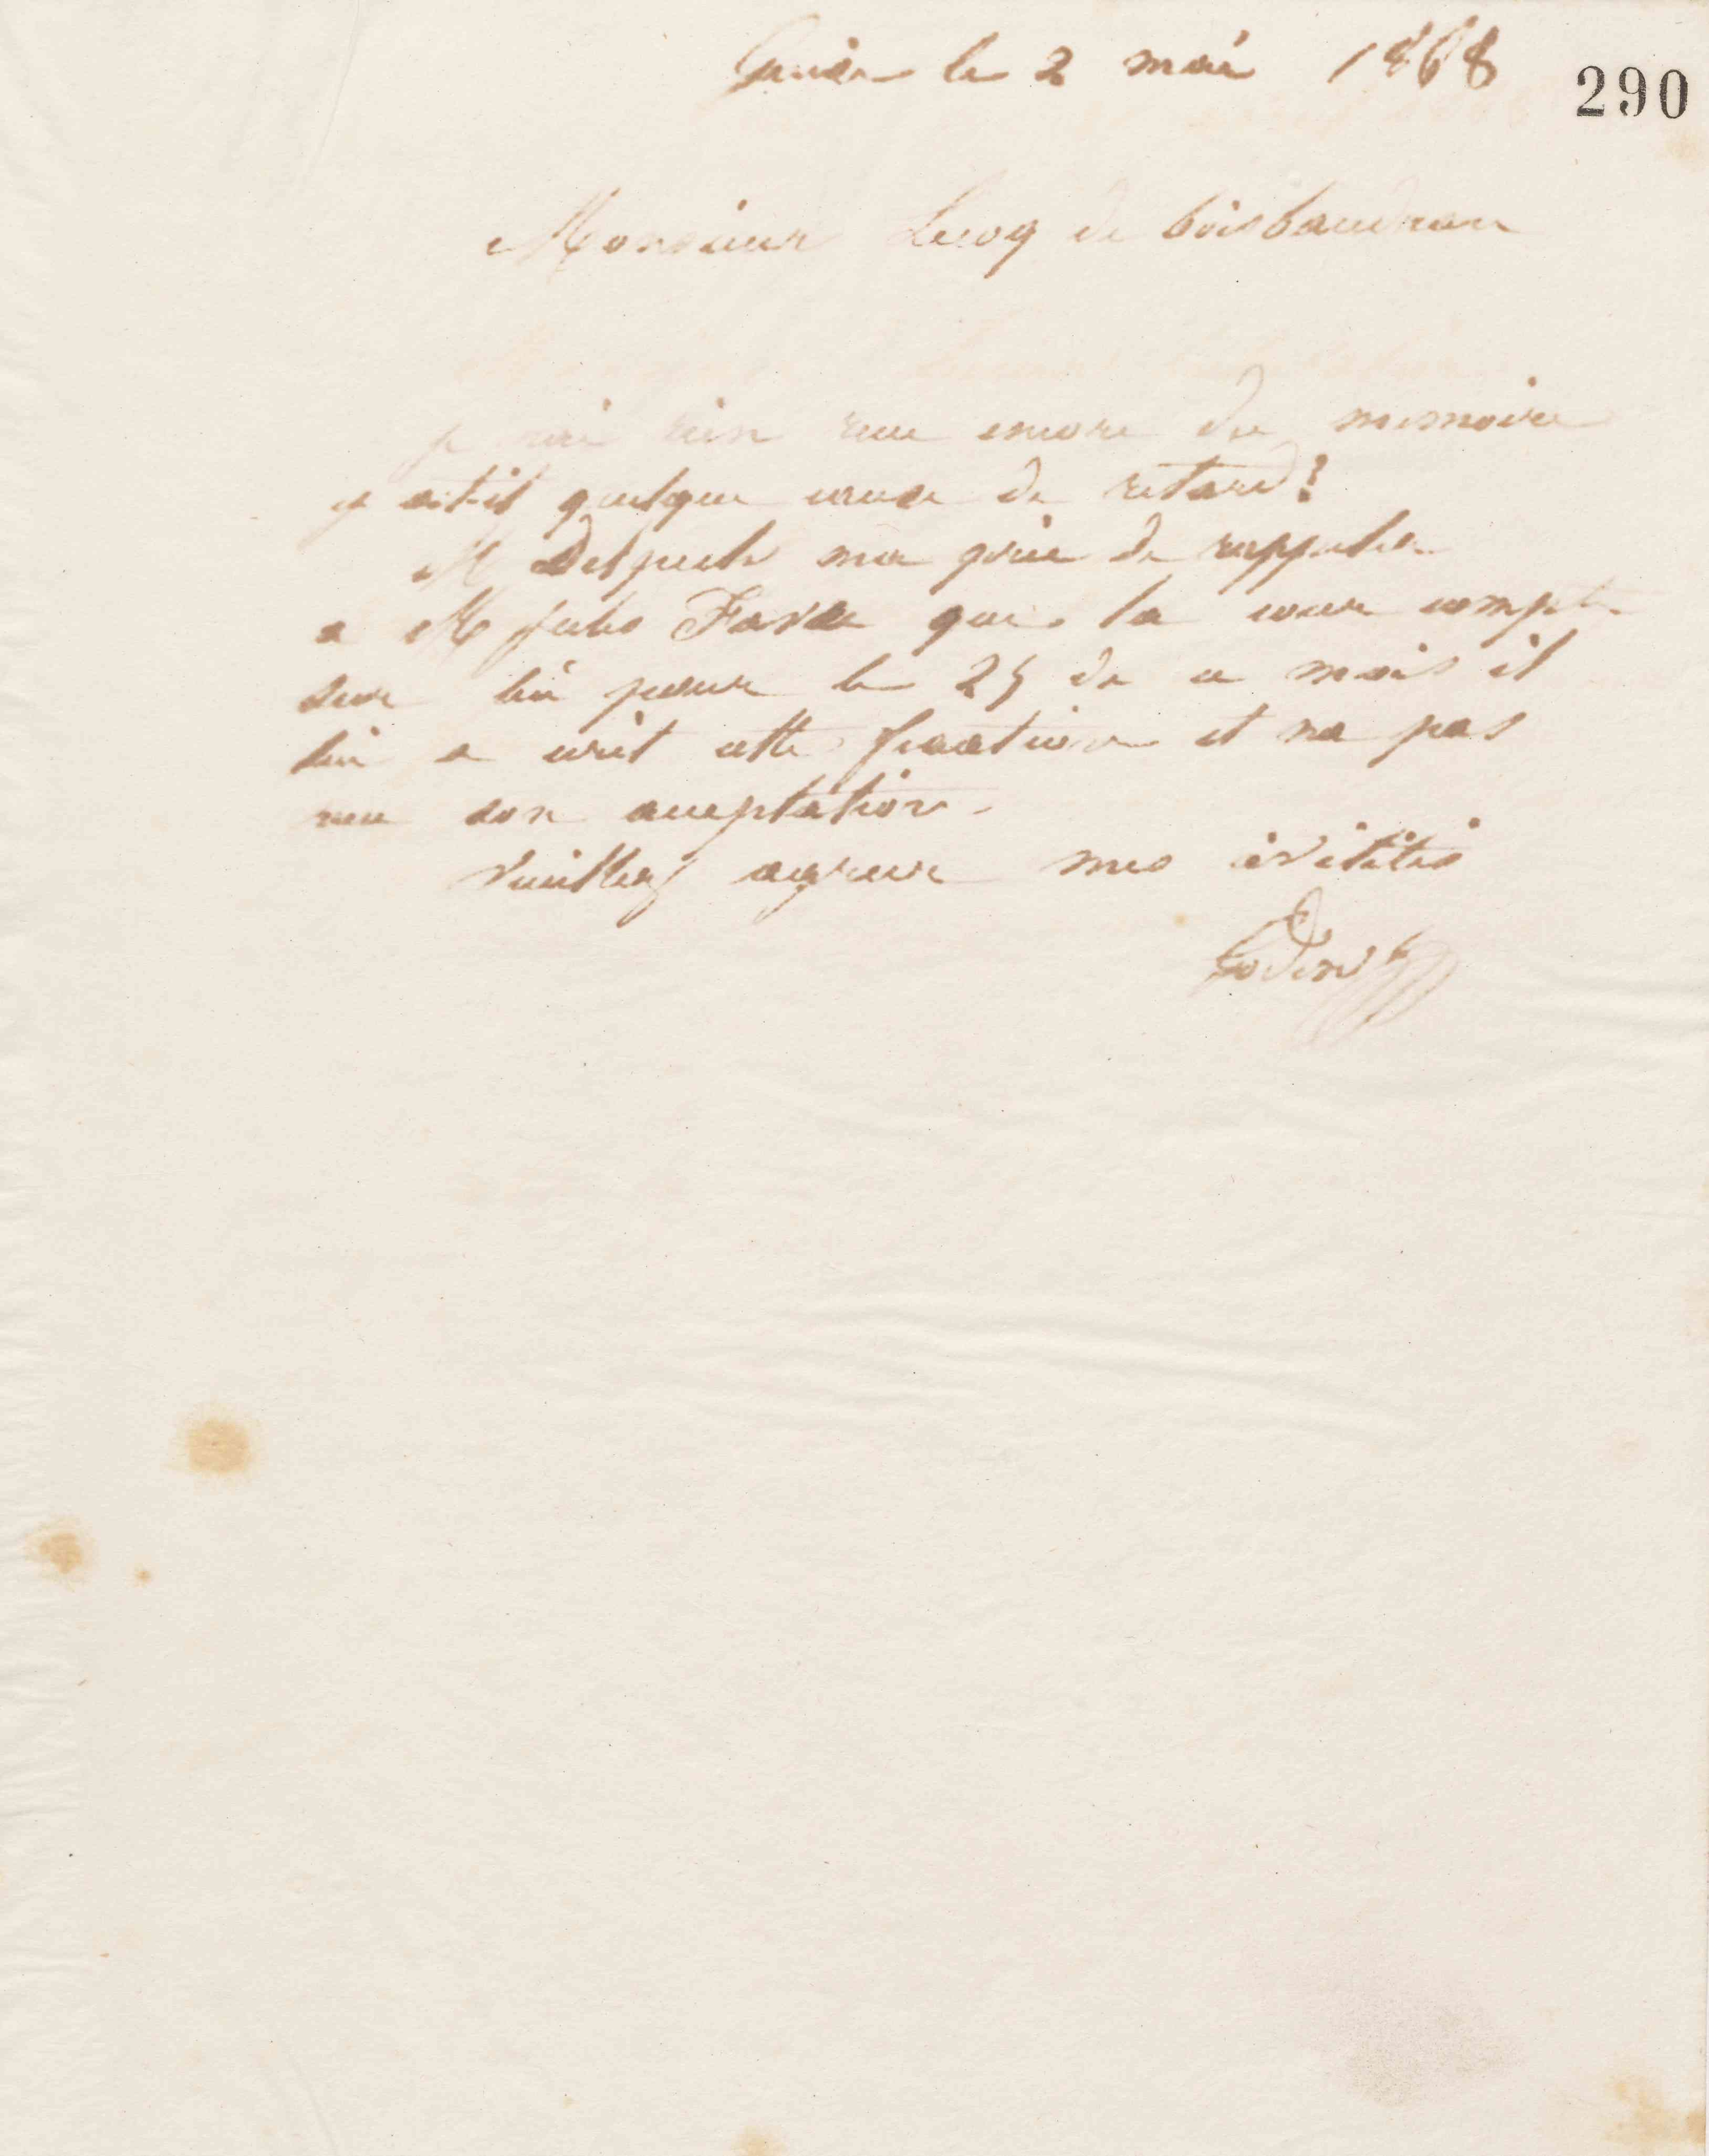 Guise le 2 mai 1868
290
Monsieur Lecoq de boisbaudran
je nai rien reçu encore du memoire
y at-il quelque cause de retard?
M Delpech ma prié de rappeler
a M Jules Favre que la cour compte
sur lui pour le 25 de ce mois il
lui a ecrit cette fixation et na pas
reçu son acceptation.
Veuillez agreer mes civilités
Godin